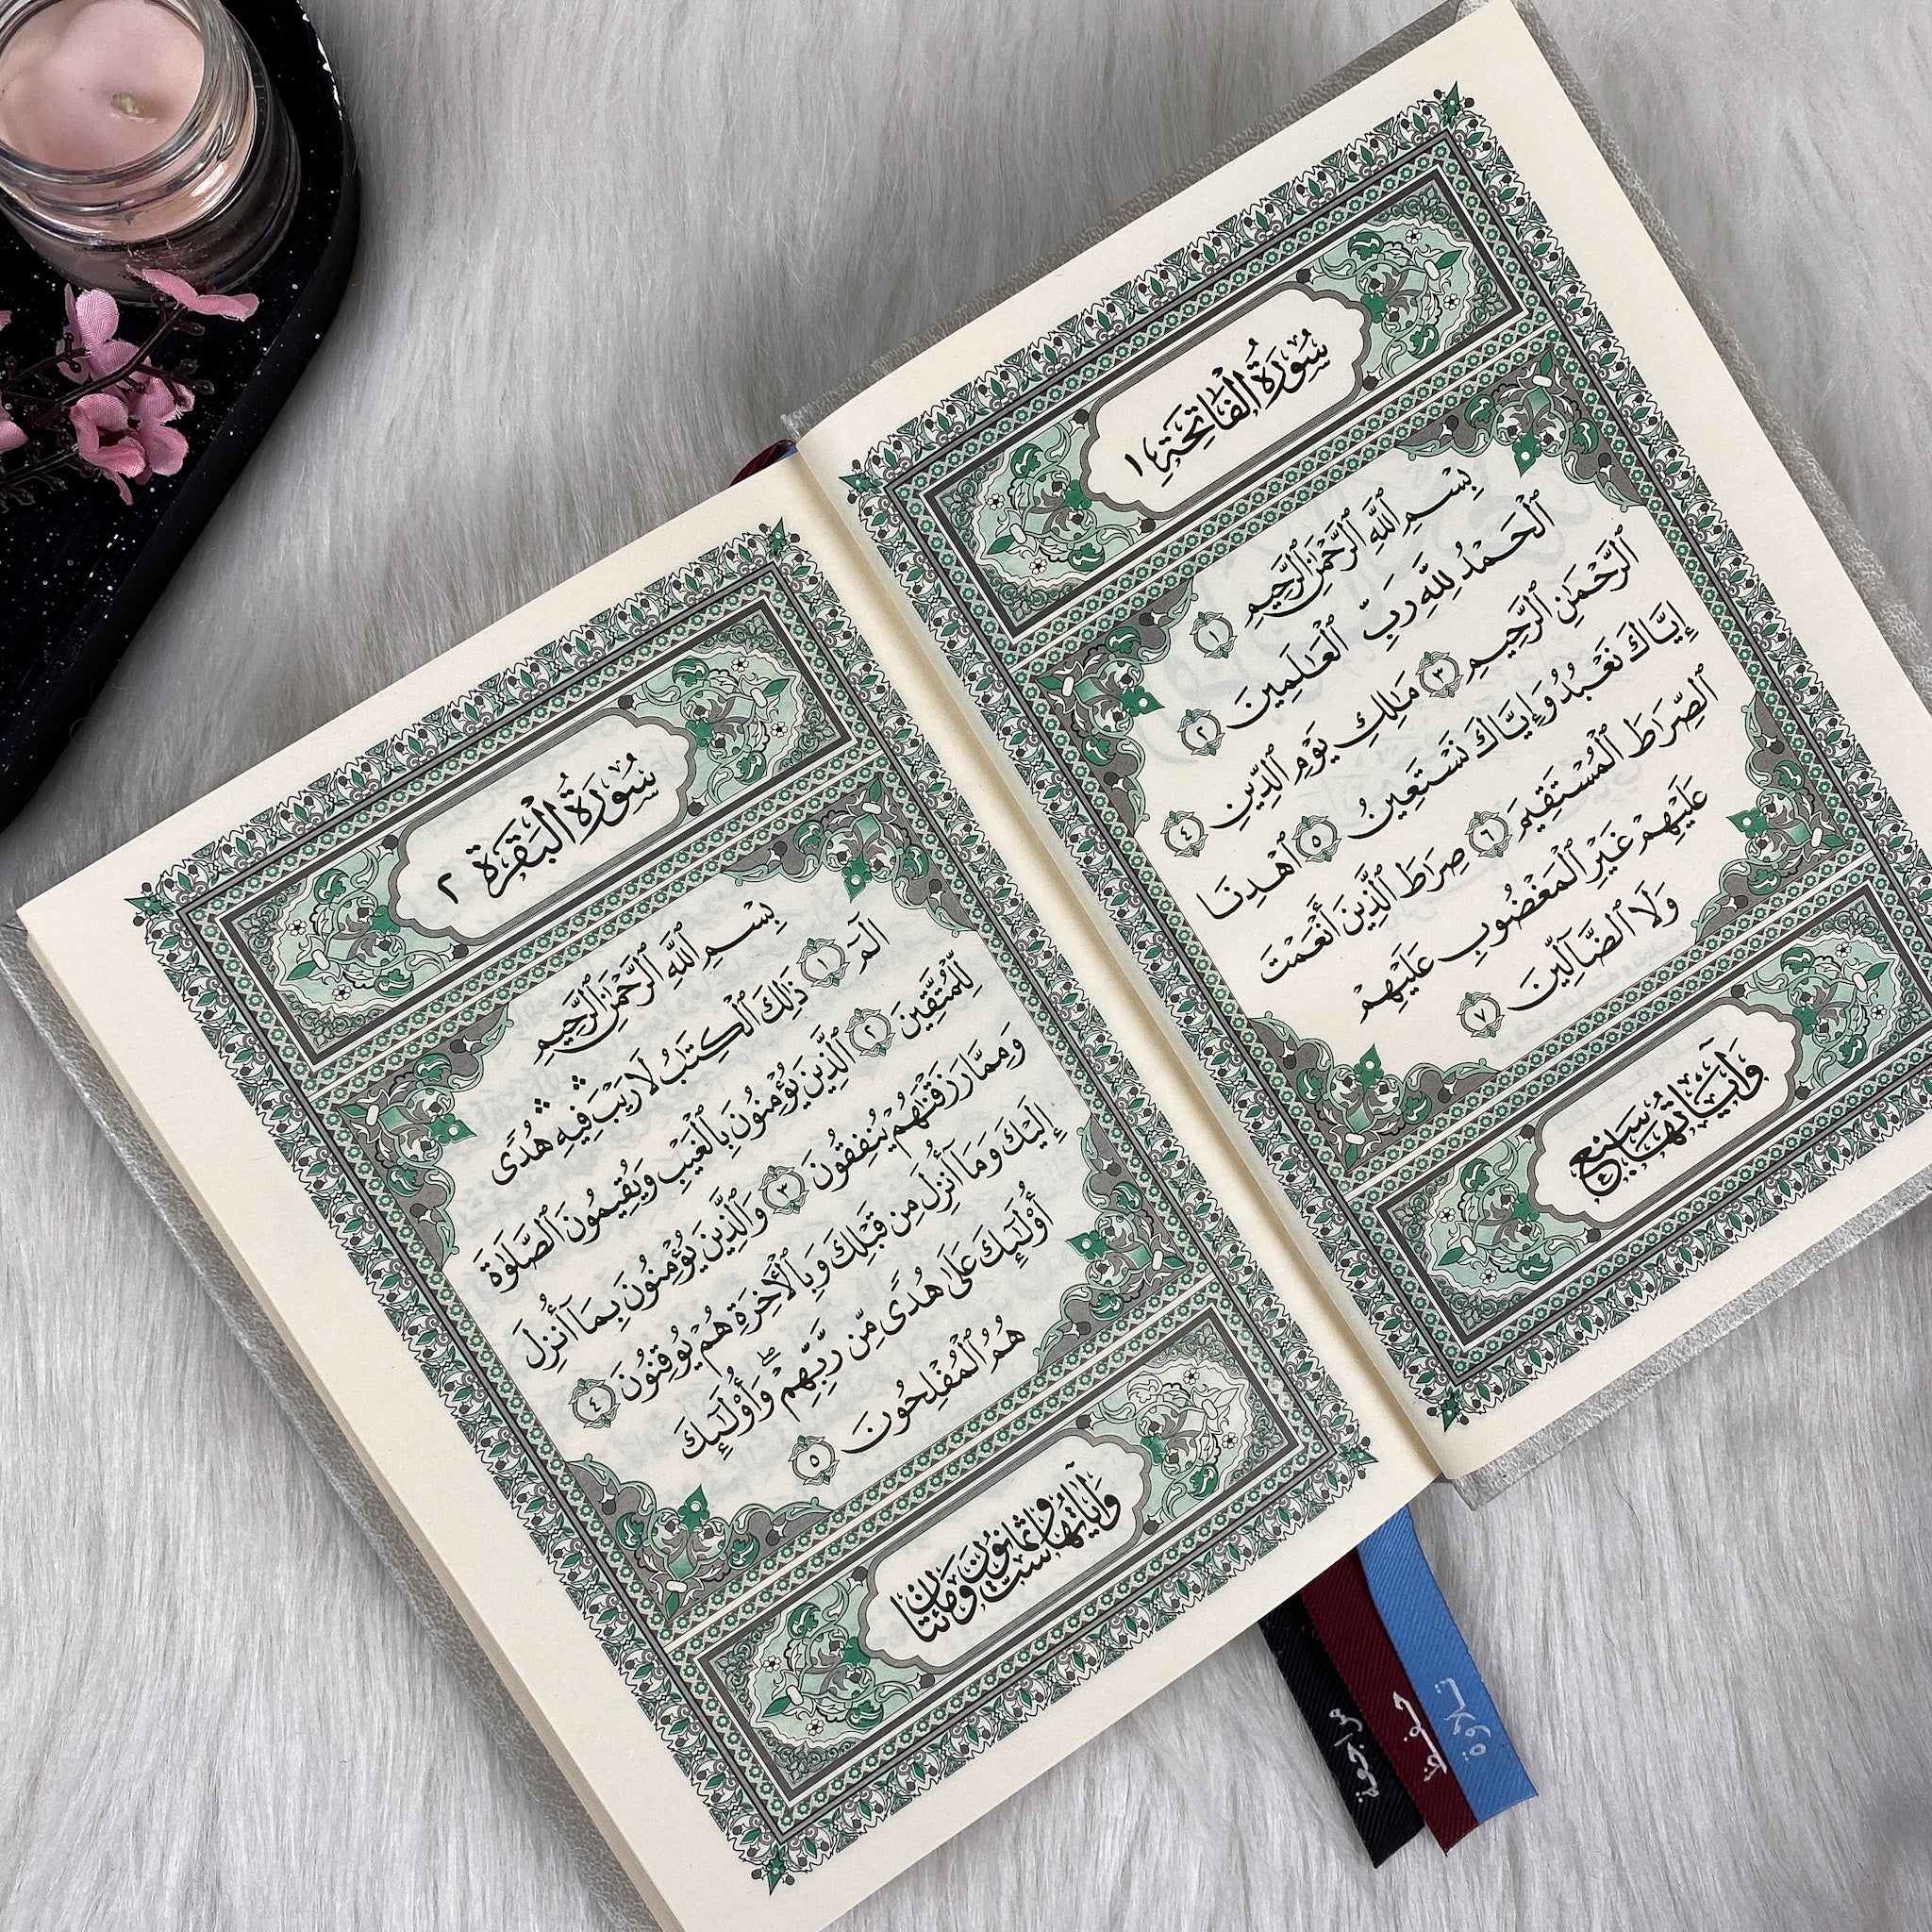 سُورَةُ الْفَاتِحَةِ ١
بِسْمِ ٱللَّهِ ٱلرَّحْمَٰنِ ٱلرَّحِيمِ ١
ٱلْحَمْدُ لِلَّهِ رَبِّ ٱلْعَٰلَمِينَ ٢
ٱلرَّحْمَٰنِ ٱلرَّحِيمِ ٣ مَٰلِكِ يَوْمِ ٱلدِّينِ ٤
إِيَّاكَ نَعْبُدُ وَإِيَّاكَ نَسْتَعِينُ ٥ ٱهْدِنَا
ٱلصِّرَٰطَ ٱلْمُسْتَقِيمَ ٦ صِرَٰطَ ٱلَّذِينَ أَنْعَمْتَ
عَلَيْهِمْ غَيْرِ ٱلْمَغْضُوبِ عَلَيْهِمْ
وَلَا ٱلضَّآلِّينَ ٧
وَآيَاتُهَا سَبْعٌ
سُورَةُ الْبَقَرَةِ ٢
بِسْمِ ٱللَّهِ ٱلرَّحْمَٰنِ ٱلرَّحِيمِ
الٓمٓ ١ ذَٰلِكَ ٱلْكِتَٰبُ لَا رَيْبَ ۛ فِيهِ ۛ هُدًى
لِّلْمُتَّقِينَ ٢ ٱلَّذِينَ يُؤْمِنُونَ بِٱلْغَيْبِ وَيُقِيمُونَ ٱلصَّلَوٰةَ
وَمِمَّا رَزَقْنَٰهُمْ يُنفِقُونَ ٣ وَٱلَّذِينَ يُؤْمِنُونَ بِمَآ أُنزِلَ
إِلَيْكَ وَمَآ أُنزِلَ مِن قَبْلِكَ وَبِٱلْأٓخِرَةِ هُمْ يُوقِنُونَ ٤
أُو۟لَٰٓئِكَ عَلَىٰ هُدًى مِّن رَّبِّهِمْ ۖ وَأُو۟لَٰٓئِكَ
هُمُ ٱلْمُفْلِحُونَ ٥
وَآيَاتُهَا سِتٌّ وَثَمَانُونَ وَمَائَتَانِ
مراجعة
حفظ
تلاوة